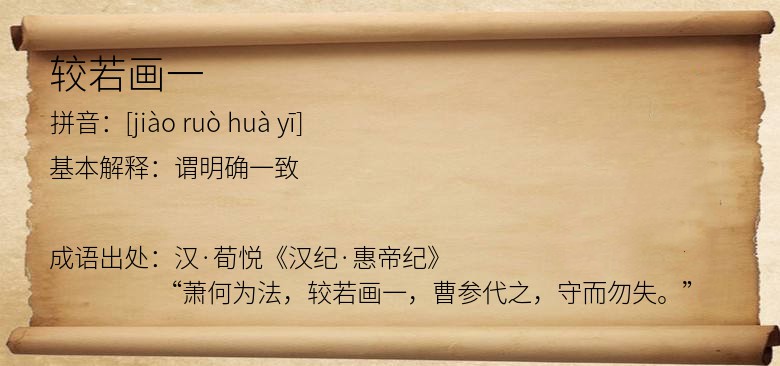 较若画一
拼音：[jiào ruò huà yī]
基本解释：谓明确一致
成语出处：汉·荀悦《汉纪·惠帝纪》
“萧何为法，较若画一，曹参代之，守而勿失。”